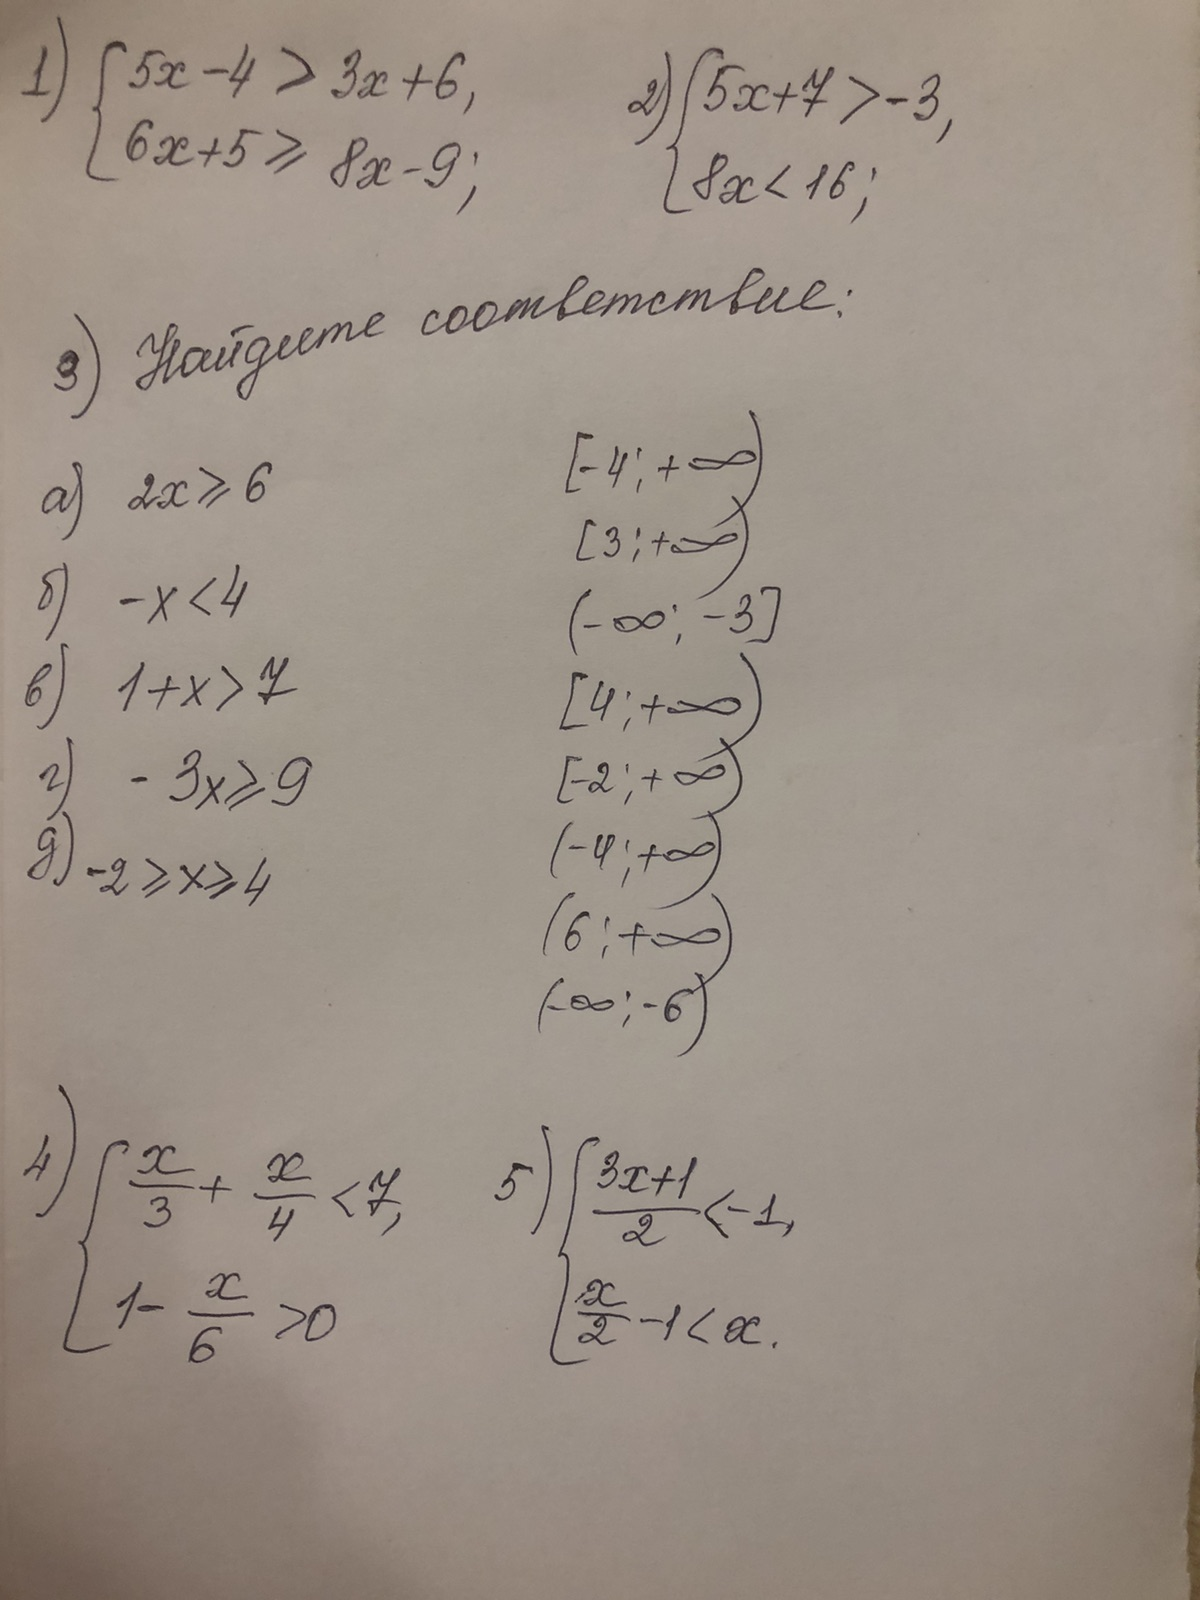 1) { 5x - 4 > 3x + 6,
6x + 5 ⩾ 8x - 9;
2) { 5x + 7 > -3,
8x < 16;
3) Найдите соответствие:
а) 2x ⩾ 6
б) -x < 4
в) 1 + x > 7
г) - 3x ⩾ 9
д) -2 ⩾ x ⩾ 4
[-4; +∞)
[3; +∞)
(-∞; -3]
[4; +∞)
[-2; +∞)
(-4; +∞)
(6; +∞)
(-∞; -6)
4) { x/3 + x/4 < 7,
1 - x/6 > 0
5) { (3x+1)/2 < -1,
x/2 - 1 < x.